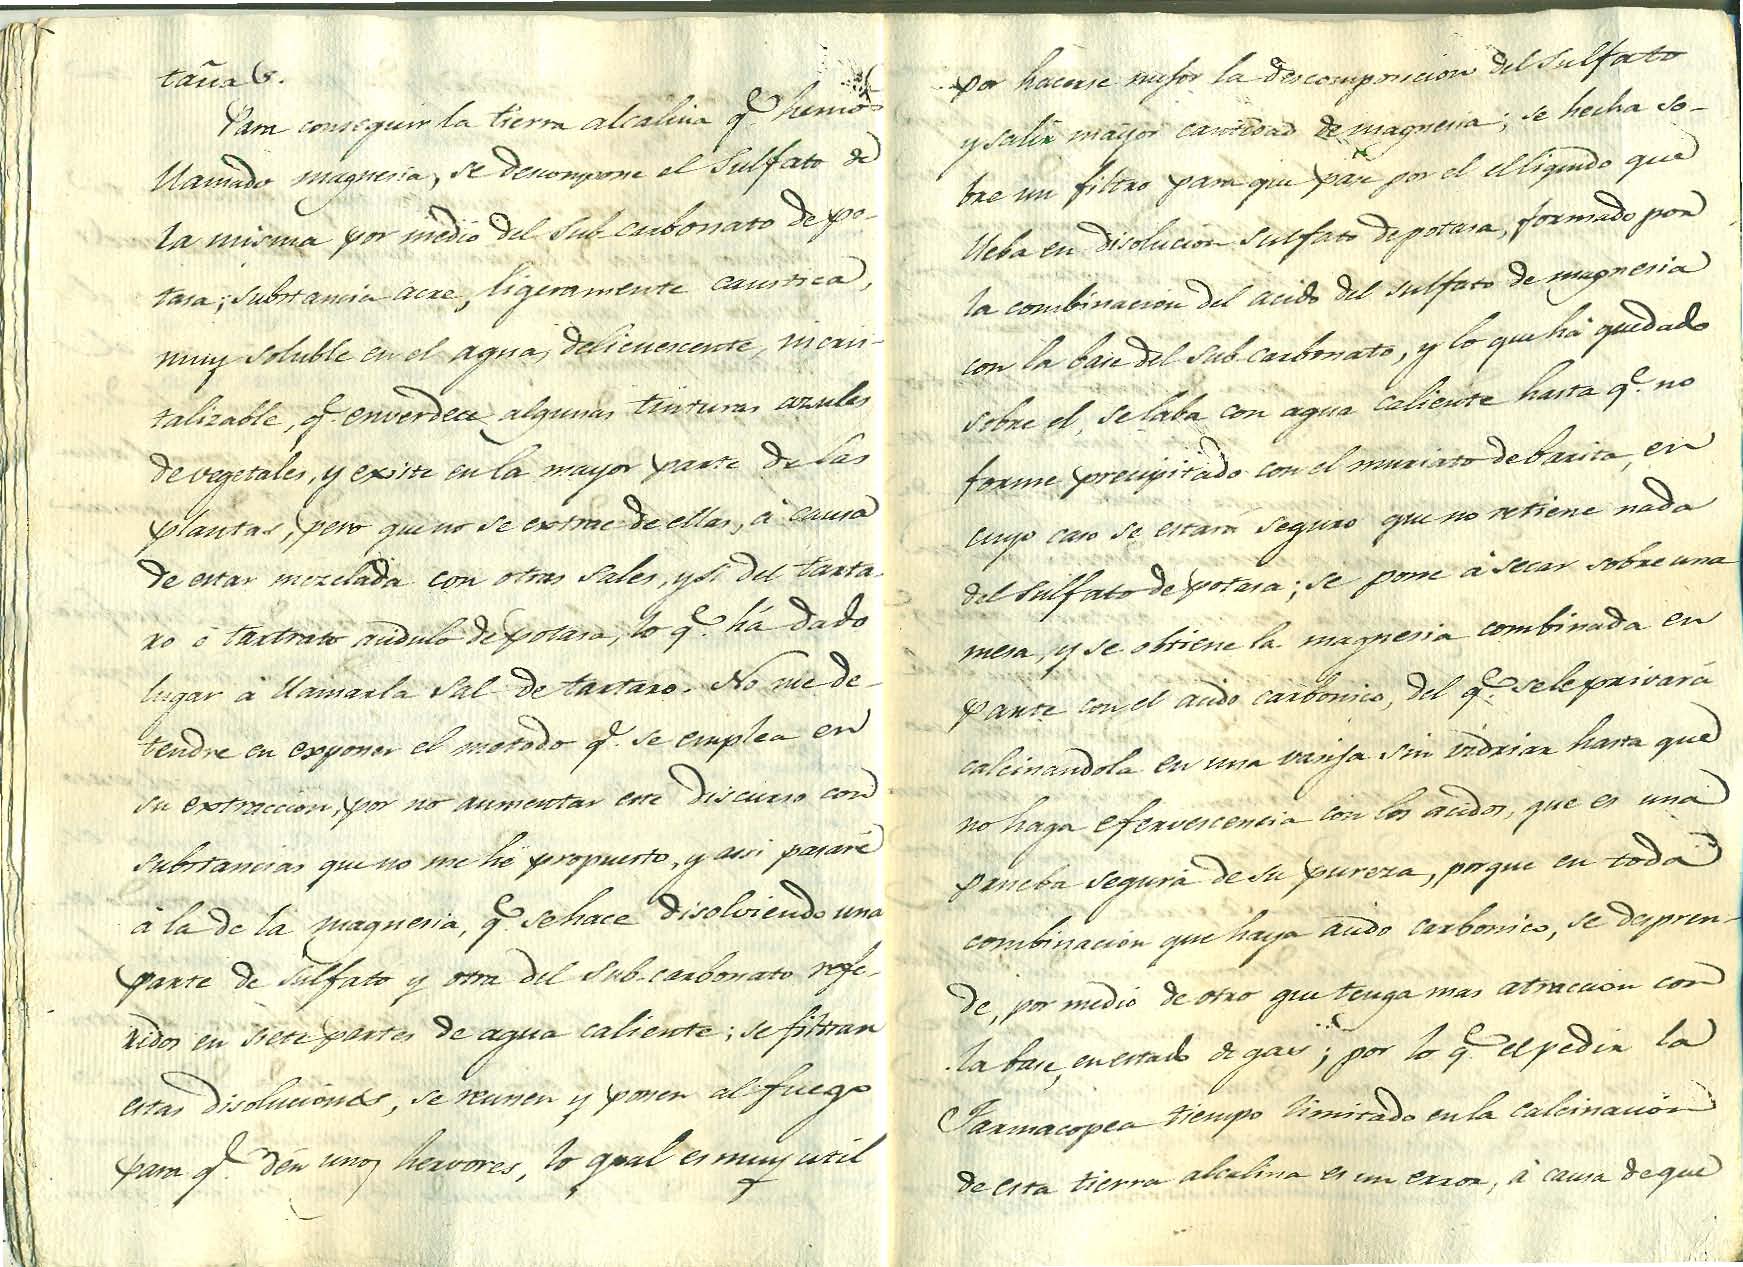 tañas.
Para conseguir la tierra alcalina q.e hemos
llamado magnesia, se descompone el Sulfato de
la misma por medio del Sub-carbonato de po-
tasa; substancia acre, ligeramente caustica,
muy soluble en el agua, delicuescente, incris-
talizable, q.e enverdece algunas tinturas azules
de vegetales, y existe en la mayor parte de las
plantas, pero que no se extrae de ellas, à causa
de estar mezclada con otras sales, y si del tarta-
ro ó tartrato acidulo de potasa, lo q.e há dado
lugar à llamarla Sal de tartaro. No me de-
tendre en exponer el metodo q.e se emplea en
su extraccion, por no aumentar este discurso con
substancias que no me hé propuesto, y asi pasaré
à la de la magnesia, q.e se hace disolviendo una
parte de sulfato y otra del Sub-carbonato refe-
ridos en siete partes de agua caliente; se filtran
estas disoluciones, se reunen y ponen al fuego
para q.e dén unos hervores, lo qual es muy util
por hacerse mejor la descomposicion del Sulfato
y salir mayor cantidad de magnesia; se hecha so-
bre un filtro para que pase por el el liquido que
lleba en disolucion sulfato de potasa, formado por
la combinacion del acido del sulfato de magnesia
con la base del Sub-carbonato, y lo que há quedado
sobre el, se laba con agua caliente hasta q.e no
forme precipitado con el muriato de barita, en
cuyo caso se estará seguro que no retiene nada
del sulfato de potasa; se pone à secar sobre una
mesa, y se obtiene la magnesia combinada en
parte con el acido carbonico, del q.e se le privará
calcinandola en una vasija sin vidriar hasta que
no haga efervescencia con los acidos, que es una
prueba segura de su pureza, porque en toda
combinacion que haya acido carbonico, se despren-
de, por medio de otro que tenga mas atraccion con
la base, en estado de gas; por lo q.e el pedir la
Farmacopea tiempo limitado en la calcinacion
de esta tierra alcalina es un error, à causa de que